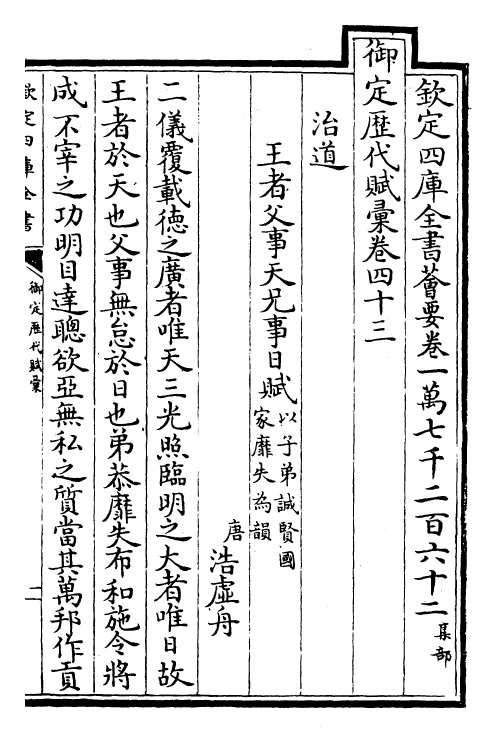 欽定四庫全書薈要卷一萬七千二百六十二集部
御定歷代賦彙卷四十三
治道
王者父事天兄事日賦以子弟誠賢國家靡失為韻
唐浩虛舟
二儀覆載德之廣者唯天三光照臨明之大者唯日故
王者於天也父事無怠於日也弟恭靡失布和施令將
成不宰之功明目達聰欲亞無私之質當其萬邦作貢
欽定四庫全書
御定歷代賦彙
一